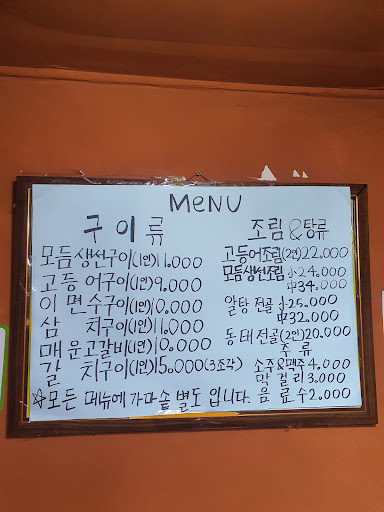 MENU
구이류
모듬생선구이(1인)11.000
고등어구이(1인)9.000
이면수구이(1인)10.000
삼치구이(1인)11.000
매운고갈비(1인)10.000
갈치구이(1인)15.000(3조각)
☆모든 메뉴에 가마솥밥 별도 입니다.
조림&탕류
고등어조림(2인)22.000
모듬생선조림 小24.000
中34.000
알탕 전골 小25.000
中32.000
동태 전골(2인)20.000
주류
소주&맥주4.000
막걸리3.000
음료수2.000